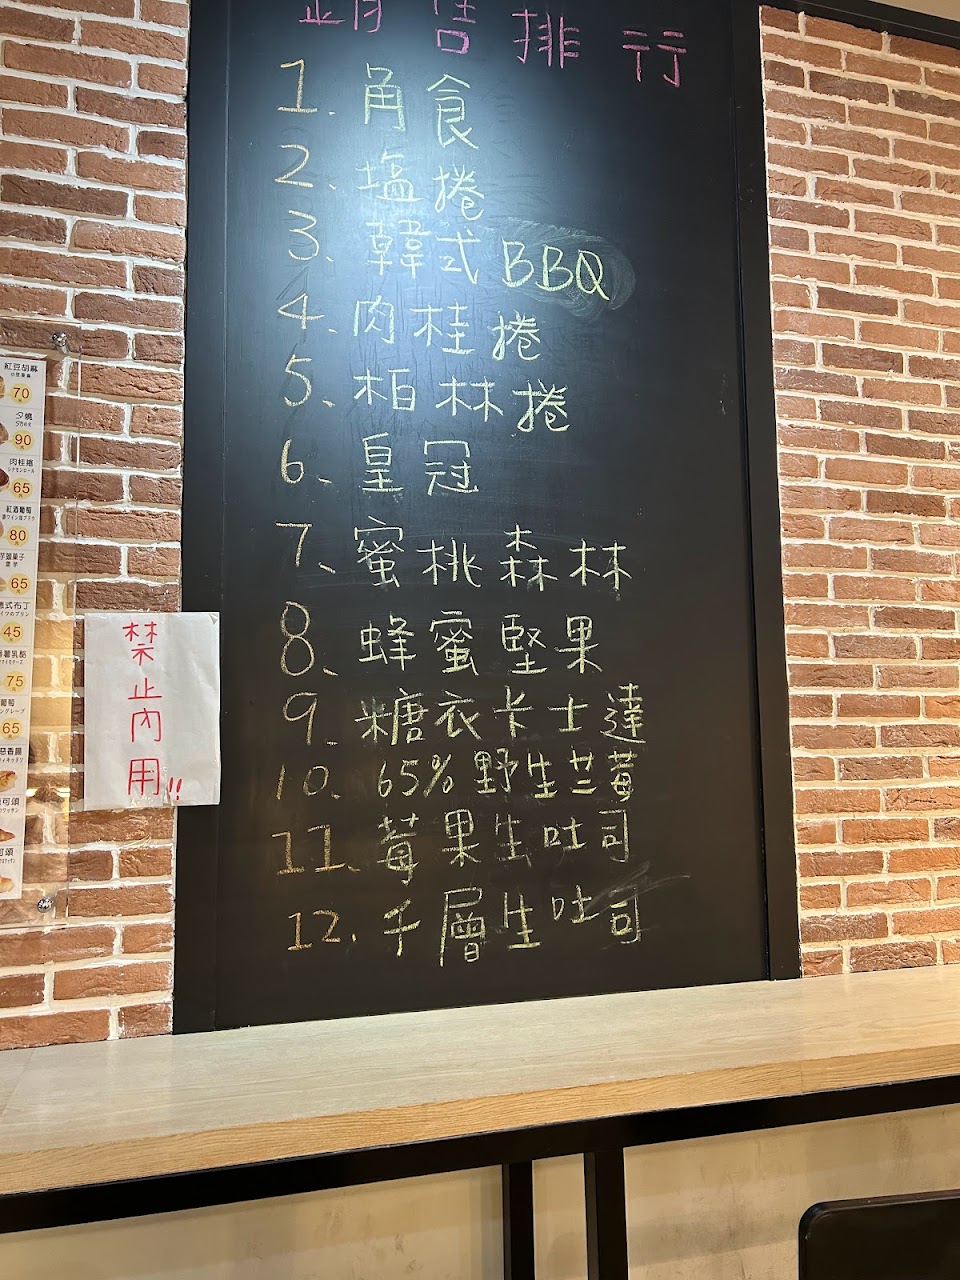 銷售排行
1. 角食
2. 塩捲
3. 韓式BBQ
4. 肉桂捲
5. 柏林捲
6. 皇冠
7. 蜜桃森林
8. 蜂蜜堅果
9. 糖衣卡士達
10. 65%野生芒莓
11. 莓果生吐司
12. 千層生吐司
禁止內用!!
紅豆胡麻
70
夕燒
90
肉桂捲
シナモンロール
65
紅酒葡萄
80
65
式布丁
45
75
葡萄
65
可頌